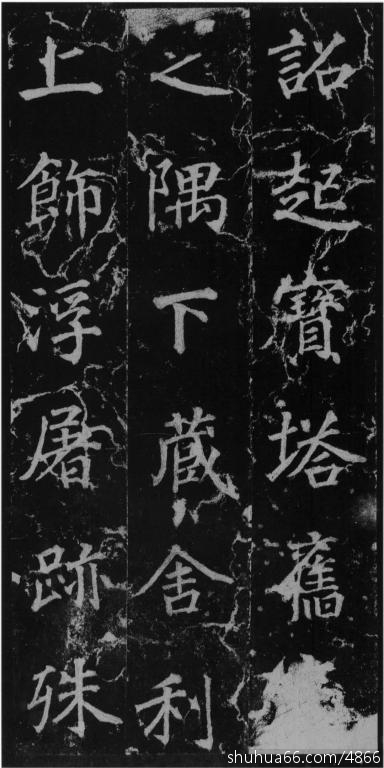 詔起寶塔舊
之隅下蔵舍利
上飾浮屠跡殊
shuhua66.com/4866